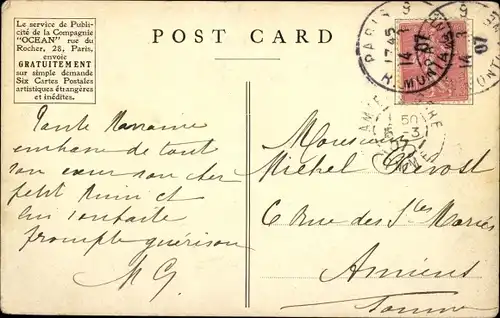 Le service de Publi-
cité de la Compagnie
"OCEAN" rue du
Rocher, 28, Paris,
envoie
GRATUITEMENT
sur simple demande
Six Cartes Postales
artistiques étrangères
et inédites.
POST CARD
PARIS
17 45
14 3
07
R. MONTAIGNE
Tante Marraine
embrasse de tout
son cœur son cher
petit Mimi et
lui souhaite
prompte guérison
M G
Monsieur
Michel Prevost
6 Rue des Stes Maries
Amiens
Somme